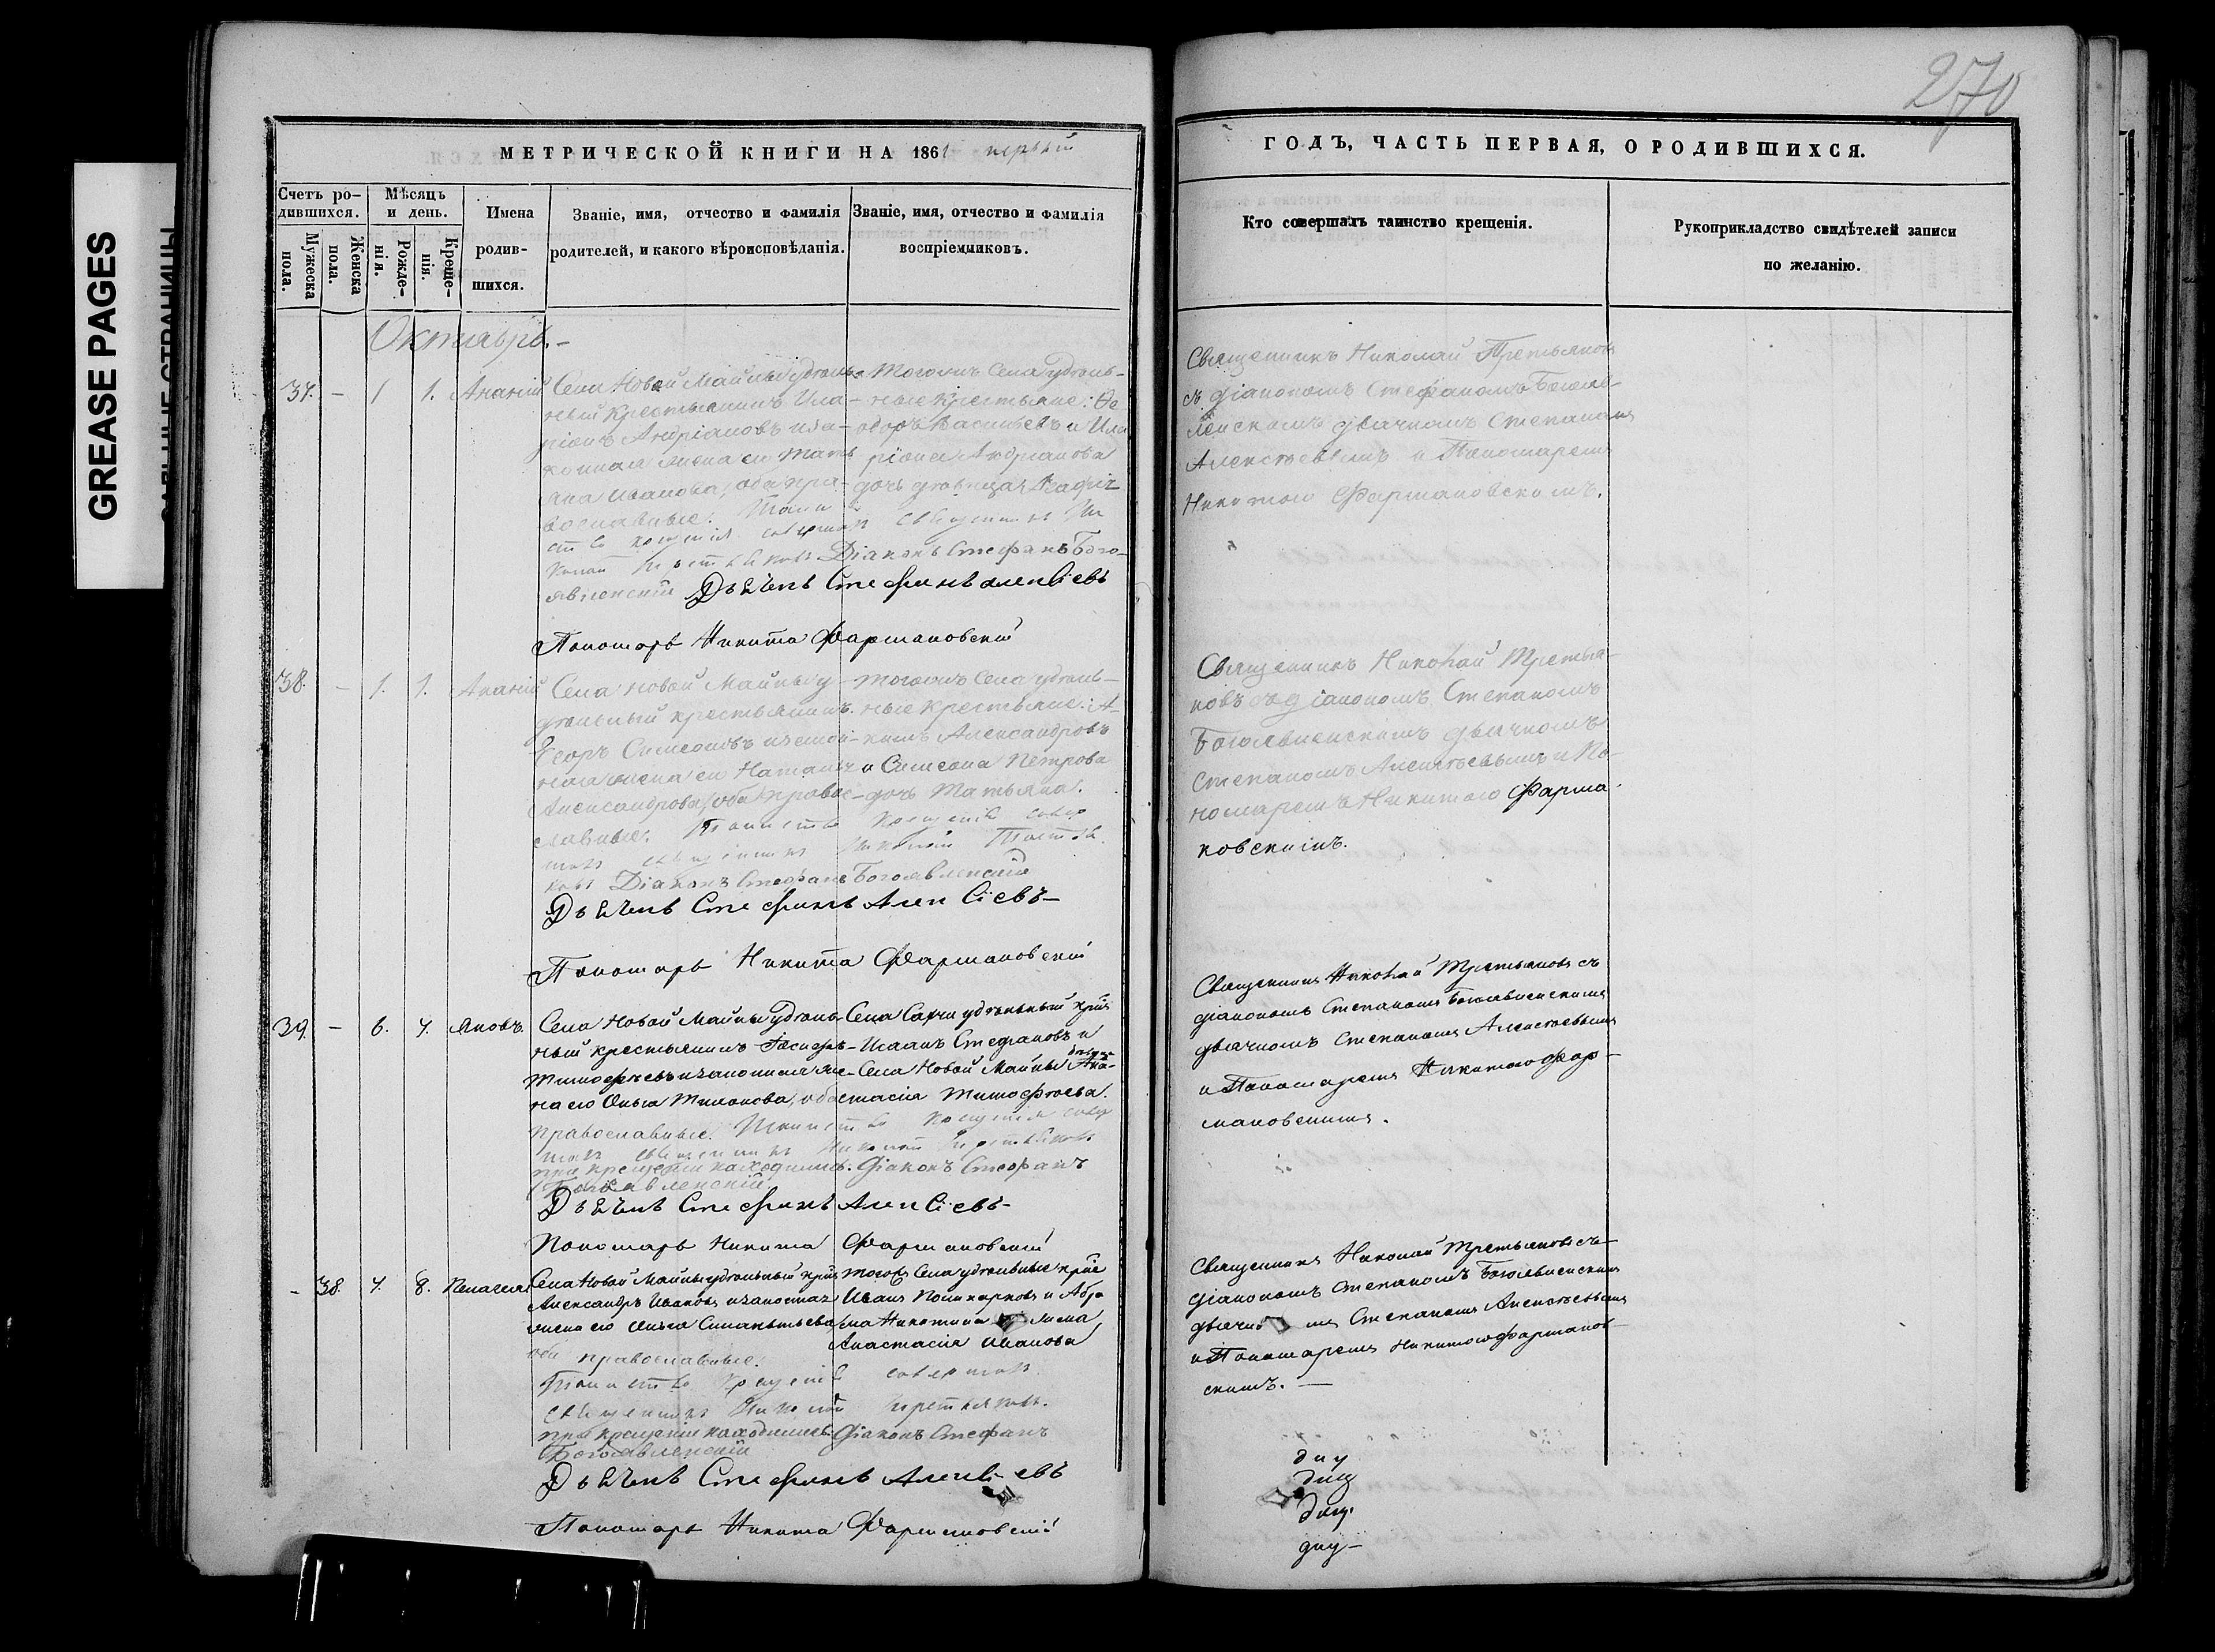 GREASE PAGES
270
МЕТРИЧЕСКОЙ КНИГИ НА 1861 первый
ГОДЪ, ЧАСТЬ ПЕРВАЯ, О РОДИВШИХСЯ.
Счетъ ро-
дившихся.
Мужеска
пола.
Женска
пола.
Мѣсяцъ
и день.
Рожде-
нія.
Креще-
нія.
Имена
родив-
шихся.
Званіе, имя, отчество и фамилія
родителей, и какого вѣроисповѣданія.
Званіе, имя, отчество и фамилія
воспріемниковъ.
Кто совершалъ таинство крещенія.
Рукоприкладство свидѣтелей записи
по желанію.
Октябрь.
37. - 1 1. Ананій
Села Новой Майны удѣль-
ный крестьянинъ Ила-
ріонъ Андріановъ и за-
конная жена ею Тать
яна Иванова, оба пра-
вославные. Таин
ство крещенія совершалъ Священникъ Ни
колай Третьяковъ Діаконъ Стефанъ Бого-
явленскій Дьячекъ Стефанъ Алексіевъ
Пономарь Никита Фармаковскій
Тогожъ Села удѣль-
ные крестьяне: Ѳе
одоръ Васильевъ и Ила
ріона Андріанова
дочь дѣвица
Священникъ Николай Третьяковъ
съ діакономъ Стефаномъ Богояв-
ленскимъ дьячкомъ Степаномъ
Алексѣевымъ и Пономаремъ
Никитою Фармаковскимъ.
38. - 1. 1. Ананій
Села Новой Майны у-
дѣльный крестьянинъ
Егоръ Симеоновъ и закон-
ная жена ею Наталья
Александрова, оба правос-
лавные. Таинство крещенія совер
шалъ священникъ Николай Третья
ковъ Діаконъ Стефанъ Богоявленскій
Дьячекъ Стефанъ Алексіевъ
Пономарь Никита Фармаковскій
тогожъ Села удѣль-
ные крестьяне: А-
кимъ Александровъ
и Симеона Петрова
дочь Татьяна.
Священникъ Николай Третья-
ковъ съ діакономъ Степаномъ
Богоявленскимъ дьячкомъ
Степаномъ Алексѣевымъ и По-
номаремъ Никитою Фарма
ковскимъ.
39. - 6. 7. Яковъ
Села Новой Майны удѣль-
ный крестьянинъ
Тимофѣевъ и законная же-
на его Ольга Тихонова, оба
православные. Таинство крещенія совер
шалъ священникъ Николай Третьяковъ
при крещеніи находились: діаконъ Стефанъ
Богоявленскій
Дьячекъ Стефанъ Алексіевъ
Пономарь Никита Фармаковскій
Села удѣльный
Стефановъ и
Села Новой Майны Ана-
стасія Тимофѣева.
Священникъ Николай Третьяковъ съ
діакономъ Степаномъ Богоявленскимъ
дьячкомъ Степаномъ Алексѣевымъ
и Пономаремъ Никитою Фар-
маковскимъ.
- 38. 7. 8. Пелагея
Села Новой Майны удѣльный
Александръ Ивановъ и законная
жена его Ольга
оба православные.
Таинство крещенія совершалъ
священникъ Николай Третьяковъ.
при крещеніи находились діаконъ Стефанъ
Богоявленскій
Дьячекъ Стефанъ Алексіевъ
Пономарь Никита Фармаковскій
тогожъ Села удѣльные
Иванъ Поликарповъ и Абра
ма Никитина жена
Анастасія Иванова
Священникъ Николай Третьяковъ съ
діакономъ Степаномъ Богоявленскимъ
Степаномъ Алексѣевымъ
и Пономаремъ Никитою Фармаков-
скимъ.